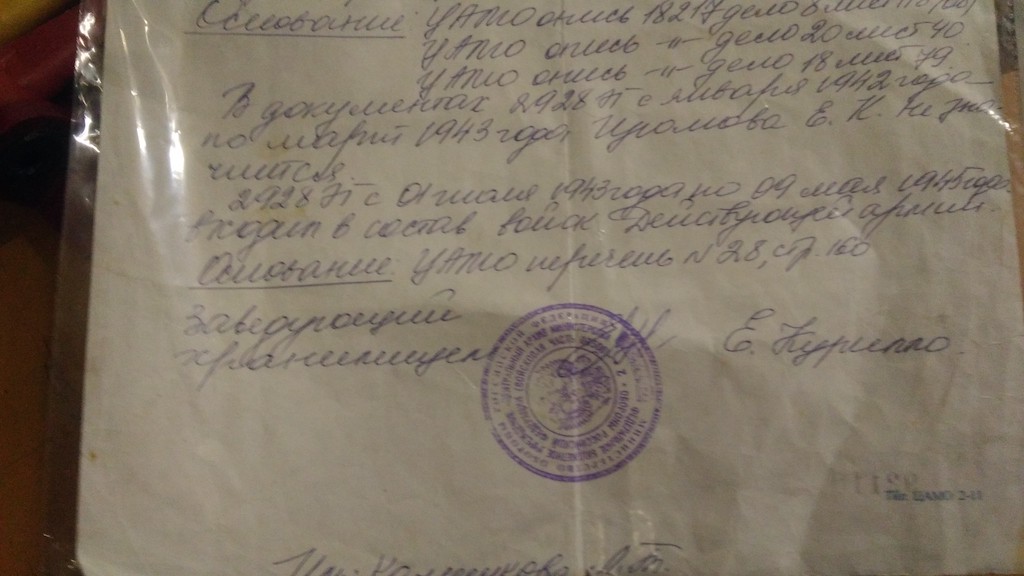 Основание: ЦАМО опись 18217 дело 8 лист
ЦАМО опись -"- дело 20 лист 40.
ЦАМО опись -"- дело 18 лист 79.
В документах 2928 ЭГ с января 1942 года
по март 1943 года Громова Е. К. не зна-
чится.
2928 ЭГ с 01 июля 1943 года по 09 мая 1945 года
входит в состав войск Действующей армии.
Основание: ЦАМО перечень N 28, стр. 160
Заведующий
хранилищем Е. Курилло.
Тип. ЦАМО 2-11
Исп. Колтчикова